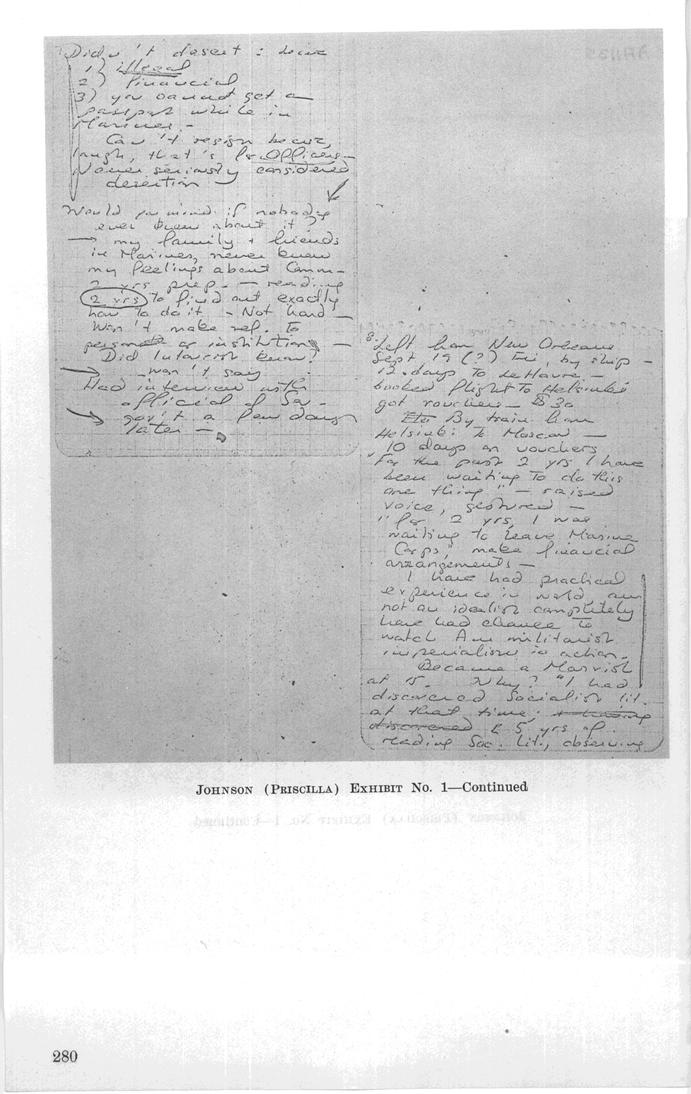 Didn't desert: have
1) illegal
2) financial
3) you cannot get a
passport while in
Marines –
Can't resign
laugh, that's for officers –
Never seriously considered
desertion –
Would you mind if nobody
ever knew about it?
→ my family + friends
in Marines, never knew
my feelings about Comm –
2 yrs prep. – reading
2 yrs to find out exactly
how to do it – Not hard –
Won't make ref. to
persons or institutions –
Did Intourist know?
→ won't say
Had interview with
official of Sov.
→ gov't a few days
later –
8. Left from New Orleans
Sept 19 (?) Fri, by ship –
12 days to Le Havre –
booked flight to Helsinki
got vouchers – $30
By train from
Helsinki to Moscow –
10 days on vouchers
"For the past 2 yrs I have
been waiting to do this
one thing" – raised
voice, gestured –
"for 2 yrs, I was
waiting to leave Marine
Corps", make financial
arrangements –
I have had practical
experience in world, am
not an idealist completely
have had chance to
watch Am militarist
imperialism in action.
Became a Marxist
at 15. Why? "I had
discovered Socialist lit.
at that time; + having
discovered 5 yrs of
reading Soc. lit., observing
JOHNSON (PRISCILLA) EXHIBIT No. 1—Continued
280